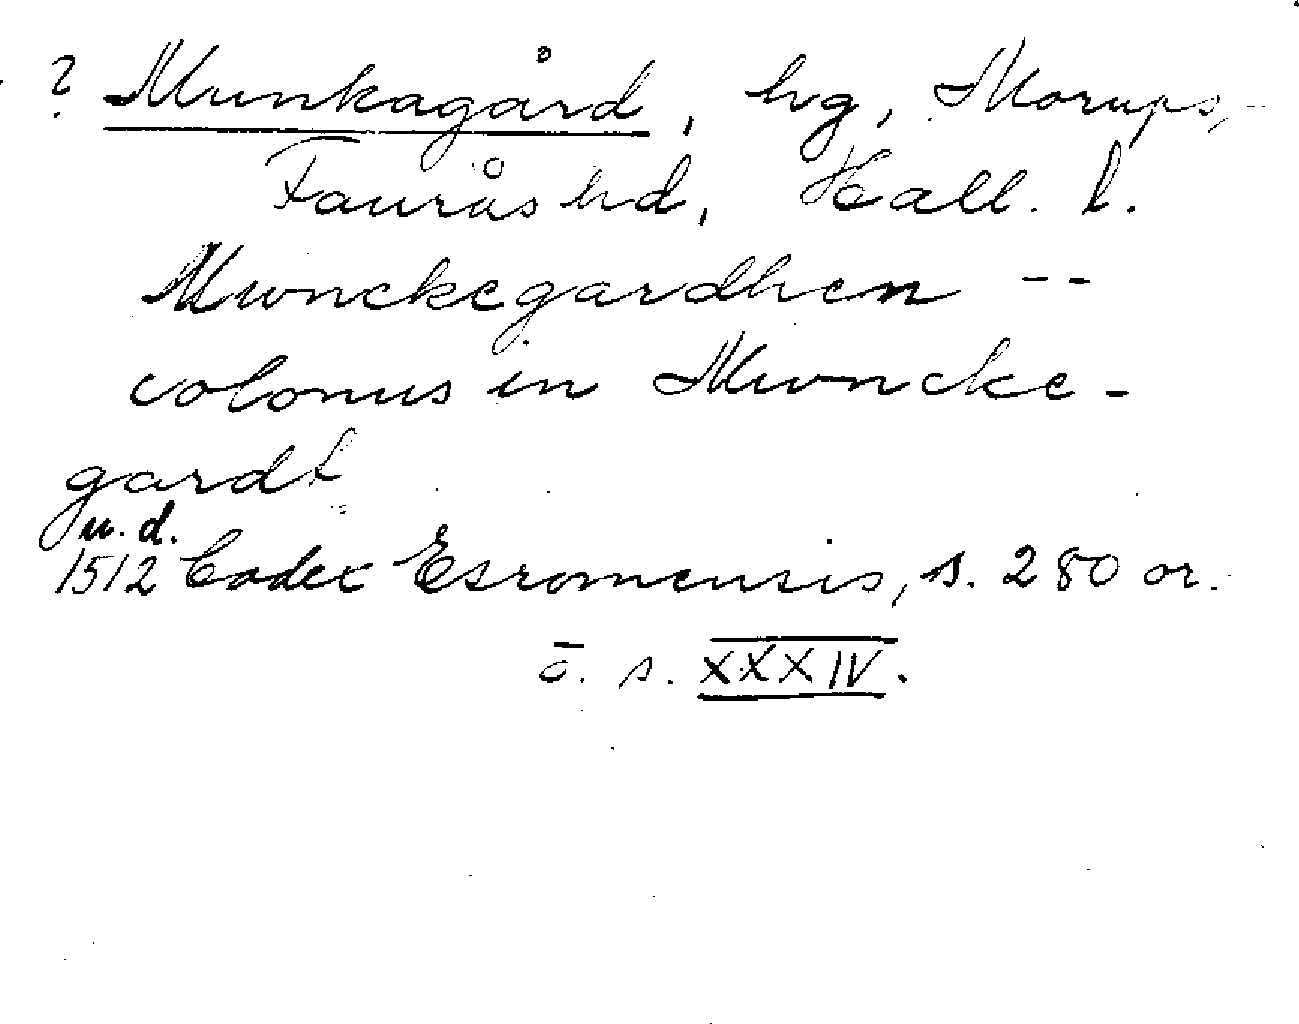 ? Munkagård, hg, Morups,
Fauråshd, Hall. l.
Mwnckegardhen --
colonus in Mwncke-
gardt
u. d.
1512 Codex Esromensis, s. 280 or.
ō. s. XXXIV.